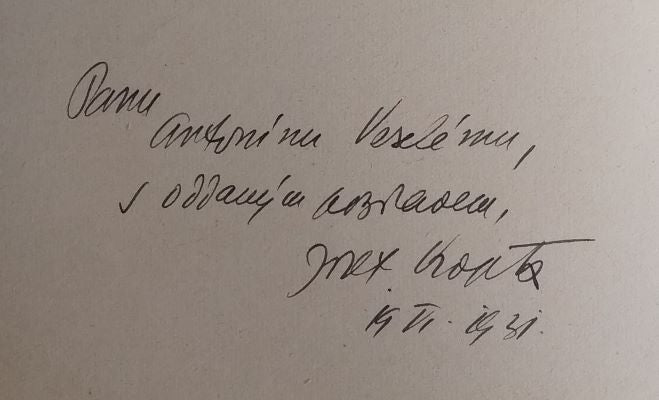 Panu
Antonínu Veselému,
s oddaným pozdravem,
Josef Kopta
19. VI. 1931.